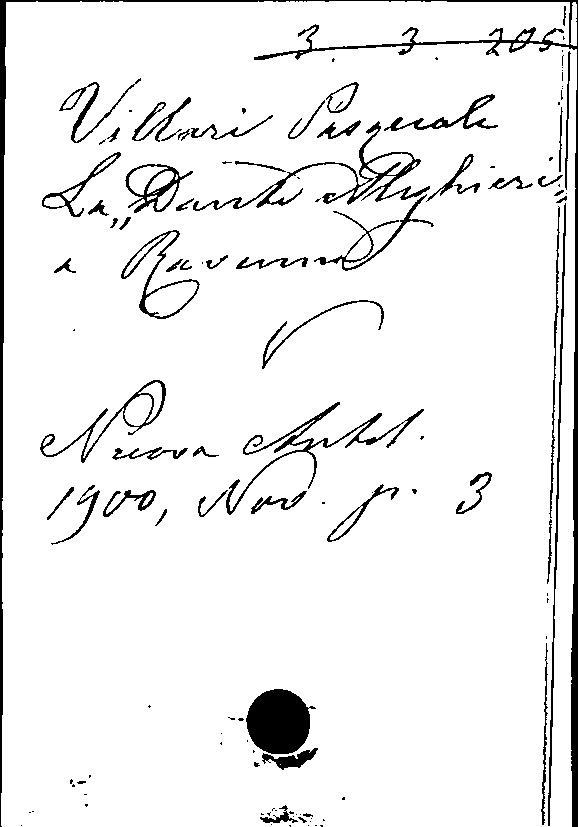 3. 3. 205
Villari Pasquale
La „Dante Alighieri„
a Ravenna
Nuova Antol.
1900, Nov. p. 3